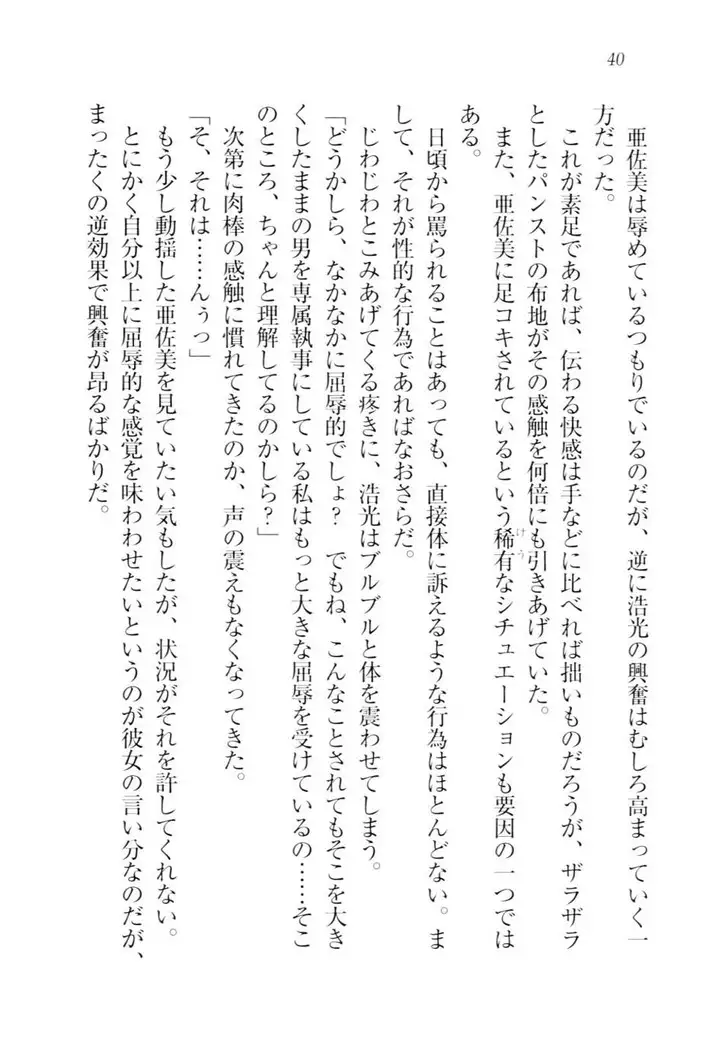 40
亜佐美は辱めているつもりでいるのだが、逆に浩光の興奮はむしろ高まっていく一
方だった。
これが素足であれば、伝わる快感は手などに比べれば拙いものだろうが、ザラザラ
としたパンストの布地がその感触を何倍にも引きあげていた。
また、亜佐美に足コキされているという稀有なシチュエーションも要因の一つでは
けう
ある。
日頃から罵られることはあっても、直接体に訴えるような行為はほとんどない。ま
して、それが性的な行為であればなおさらだ。
じわじわとこみあげてくる疼きに、浩光はブルブルと体を震わせてしまう。
「どうかしら、なかなかに屈辱的でしょ？　でもね、こんなことされてもそこを大き
くしたままの男を専属執事にしている私はもっと大きな屈辱を受けているの……そこ
のところ、ちゃんと理解してるのかしら？」
次第に肉棒の感触に慣れてきたのか、声の震えもなくなってきた。
「そ、それは……んぅっ」
もう少し動揺した亜佐美を見ていたい気もしたが、状況がそれを許してくれない。
とにかく自分以上に屈辱的な感覚を味わわせたいというのが彼女の言い分なのだが、
まったくの逆効果で興奮が昂るばかりだ。